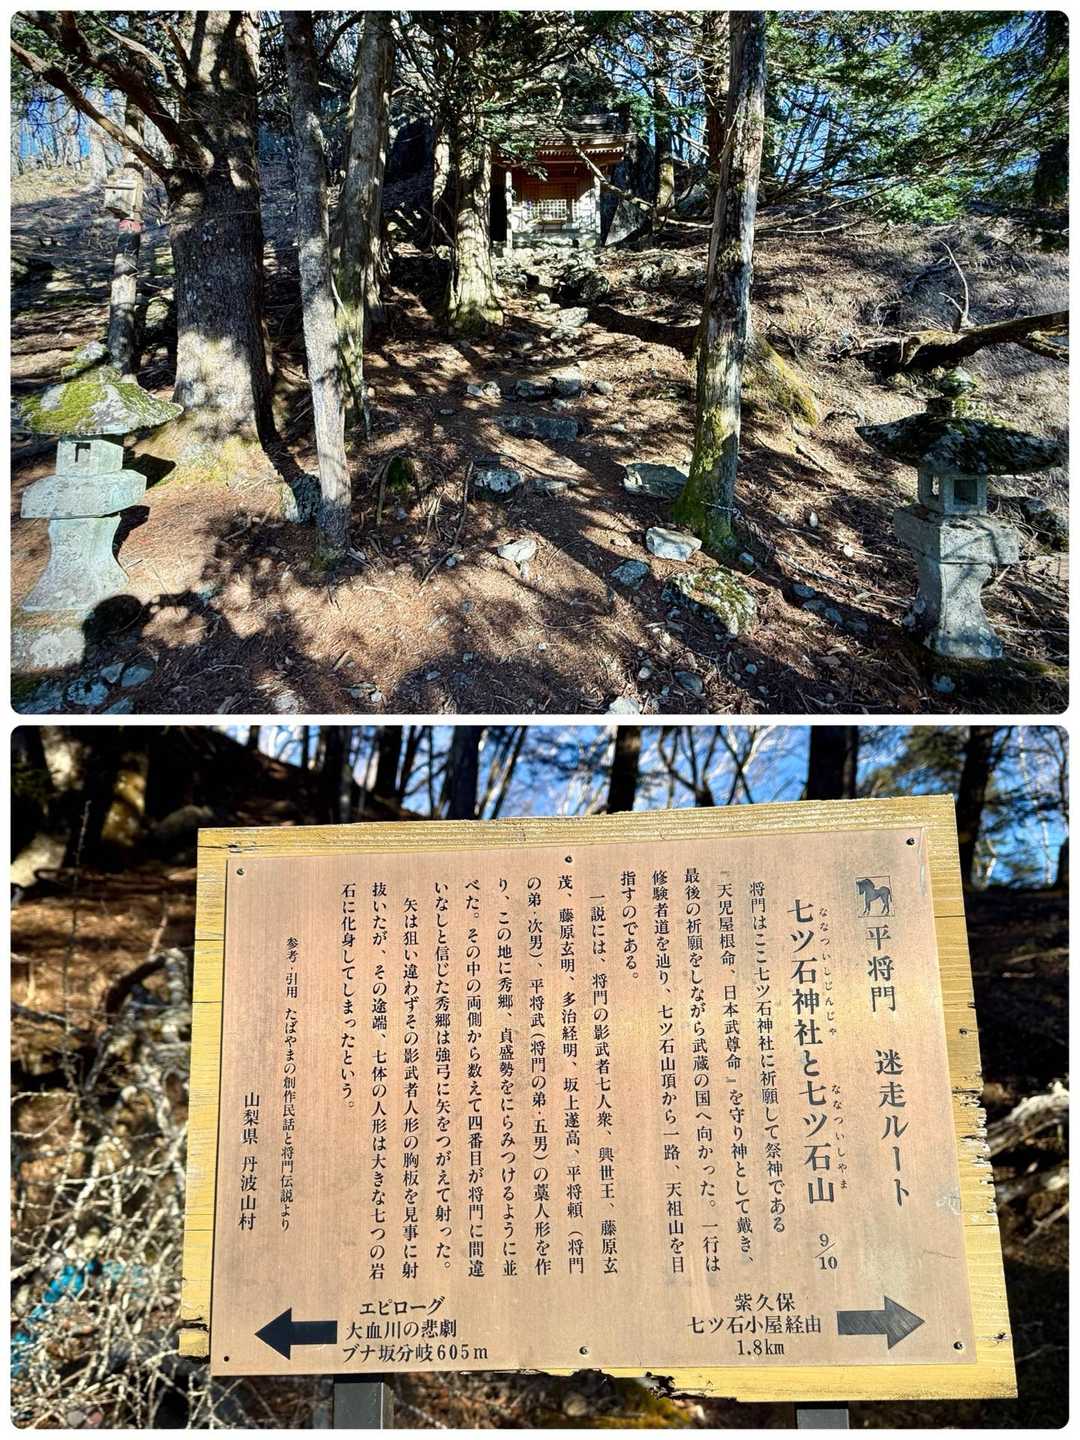 平将門　迷走ルート
七ツ石神社と七ツ石山 9/10
ななついしじんじゃ
ななついしやま
将門はここ七ツ石神社に祈願して祭神である
『天児屋根命、日本武尊命』を守り神として戴き、
最後の祈願をしながら武蔵の国へ向かった。一行は
修験者道を辿り、七ツ石山頂から一路、天祖山を目
指すのである。
一説には、将門の影武者七人衆、興世王、藤原玄
茂、藤原玄明、多治経明、坂上遂高、平将頼（将門
の弟・次男）、平将武（将門の弟・五男）の藁人形を作
り、この地に秀郷、貞盛勢をにらみつけるように並
べた。その中の両側から数えて四番目が将門に間違
いなしと信じた秀郷は強弓に矢をつがえて射った。
矢は狙い違わずその影武者人形の胸板を見事に射
抜いたが、その途端、七体の人形は大きな七つの岩
石に化身してしまったという。
参考・引用　たばやまの創作民話と将門伝説より
山梨県　丹波山村
エピローグ
大血川の悲劇
ブナ坂分岐605m
紫久保
七ツ石小屋経由
1.8km